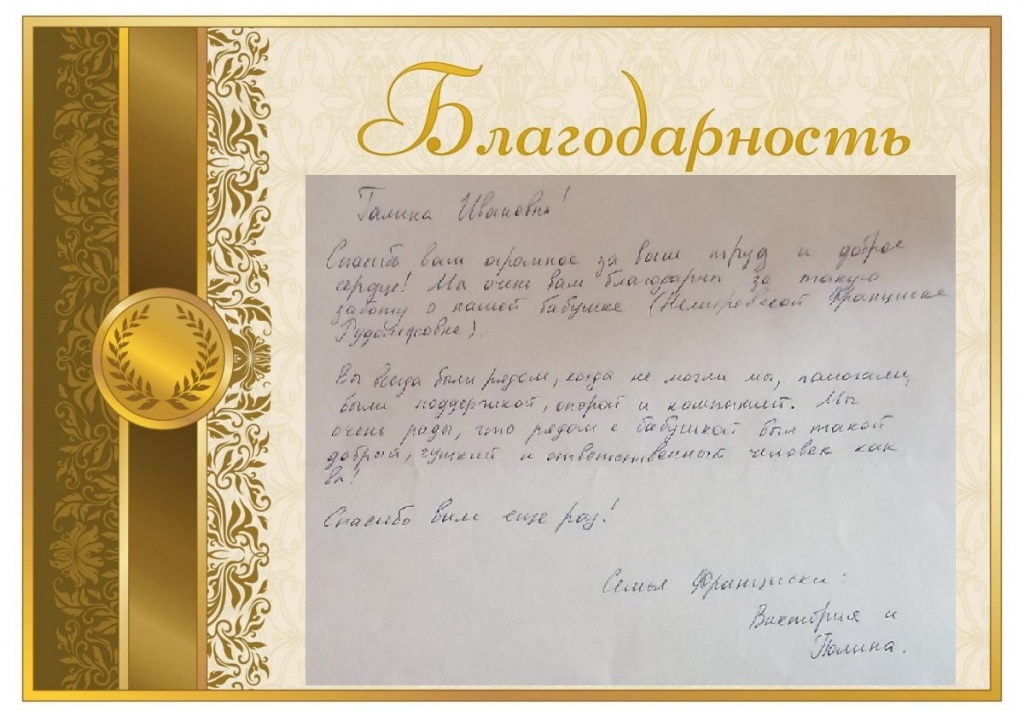 Благодарность
Галина Ивановна!
Спасибо вам огромное за ваш труд и доброе
сердце! Мы очень вам благодарны за такую
заботу о нашей бабушке (Немировской Франциске
Рудольфовне).
Вы всегда были рядом, когда не могли мы, помогали,
были поддержкой, опорой и компанией. Мы
очень рады, что рядом с бабушкой был такой
добрый, чуткий и ответственный человек как
вы!
Спасибо вам еще раз!
Семья Франциски:
Виктория и
Полина.